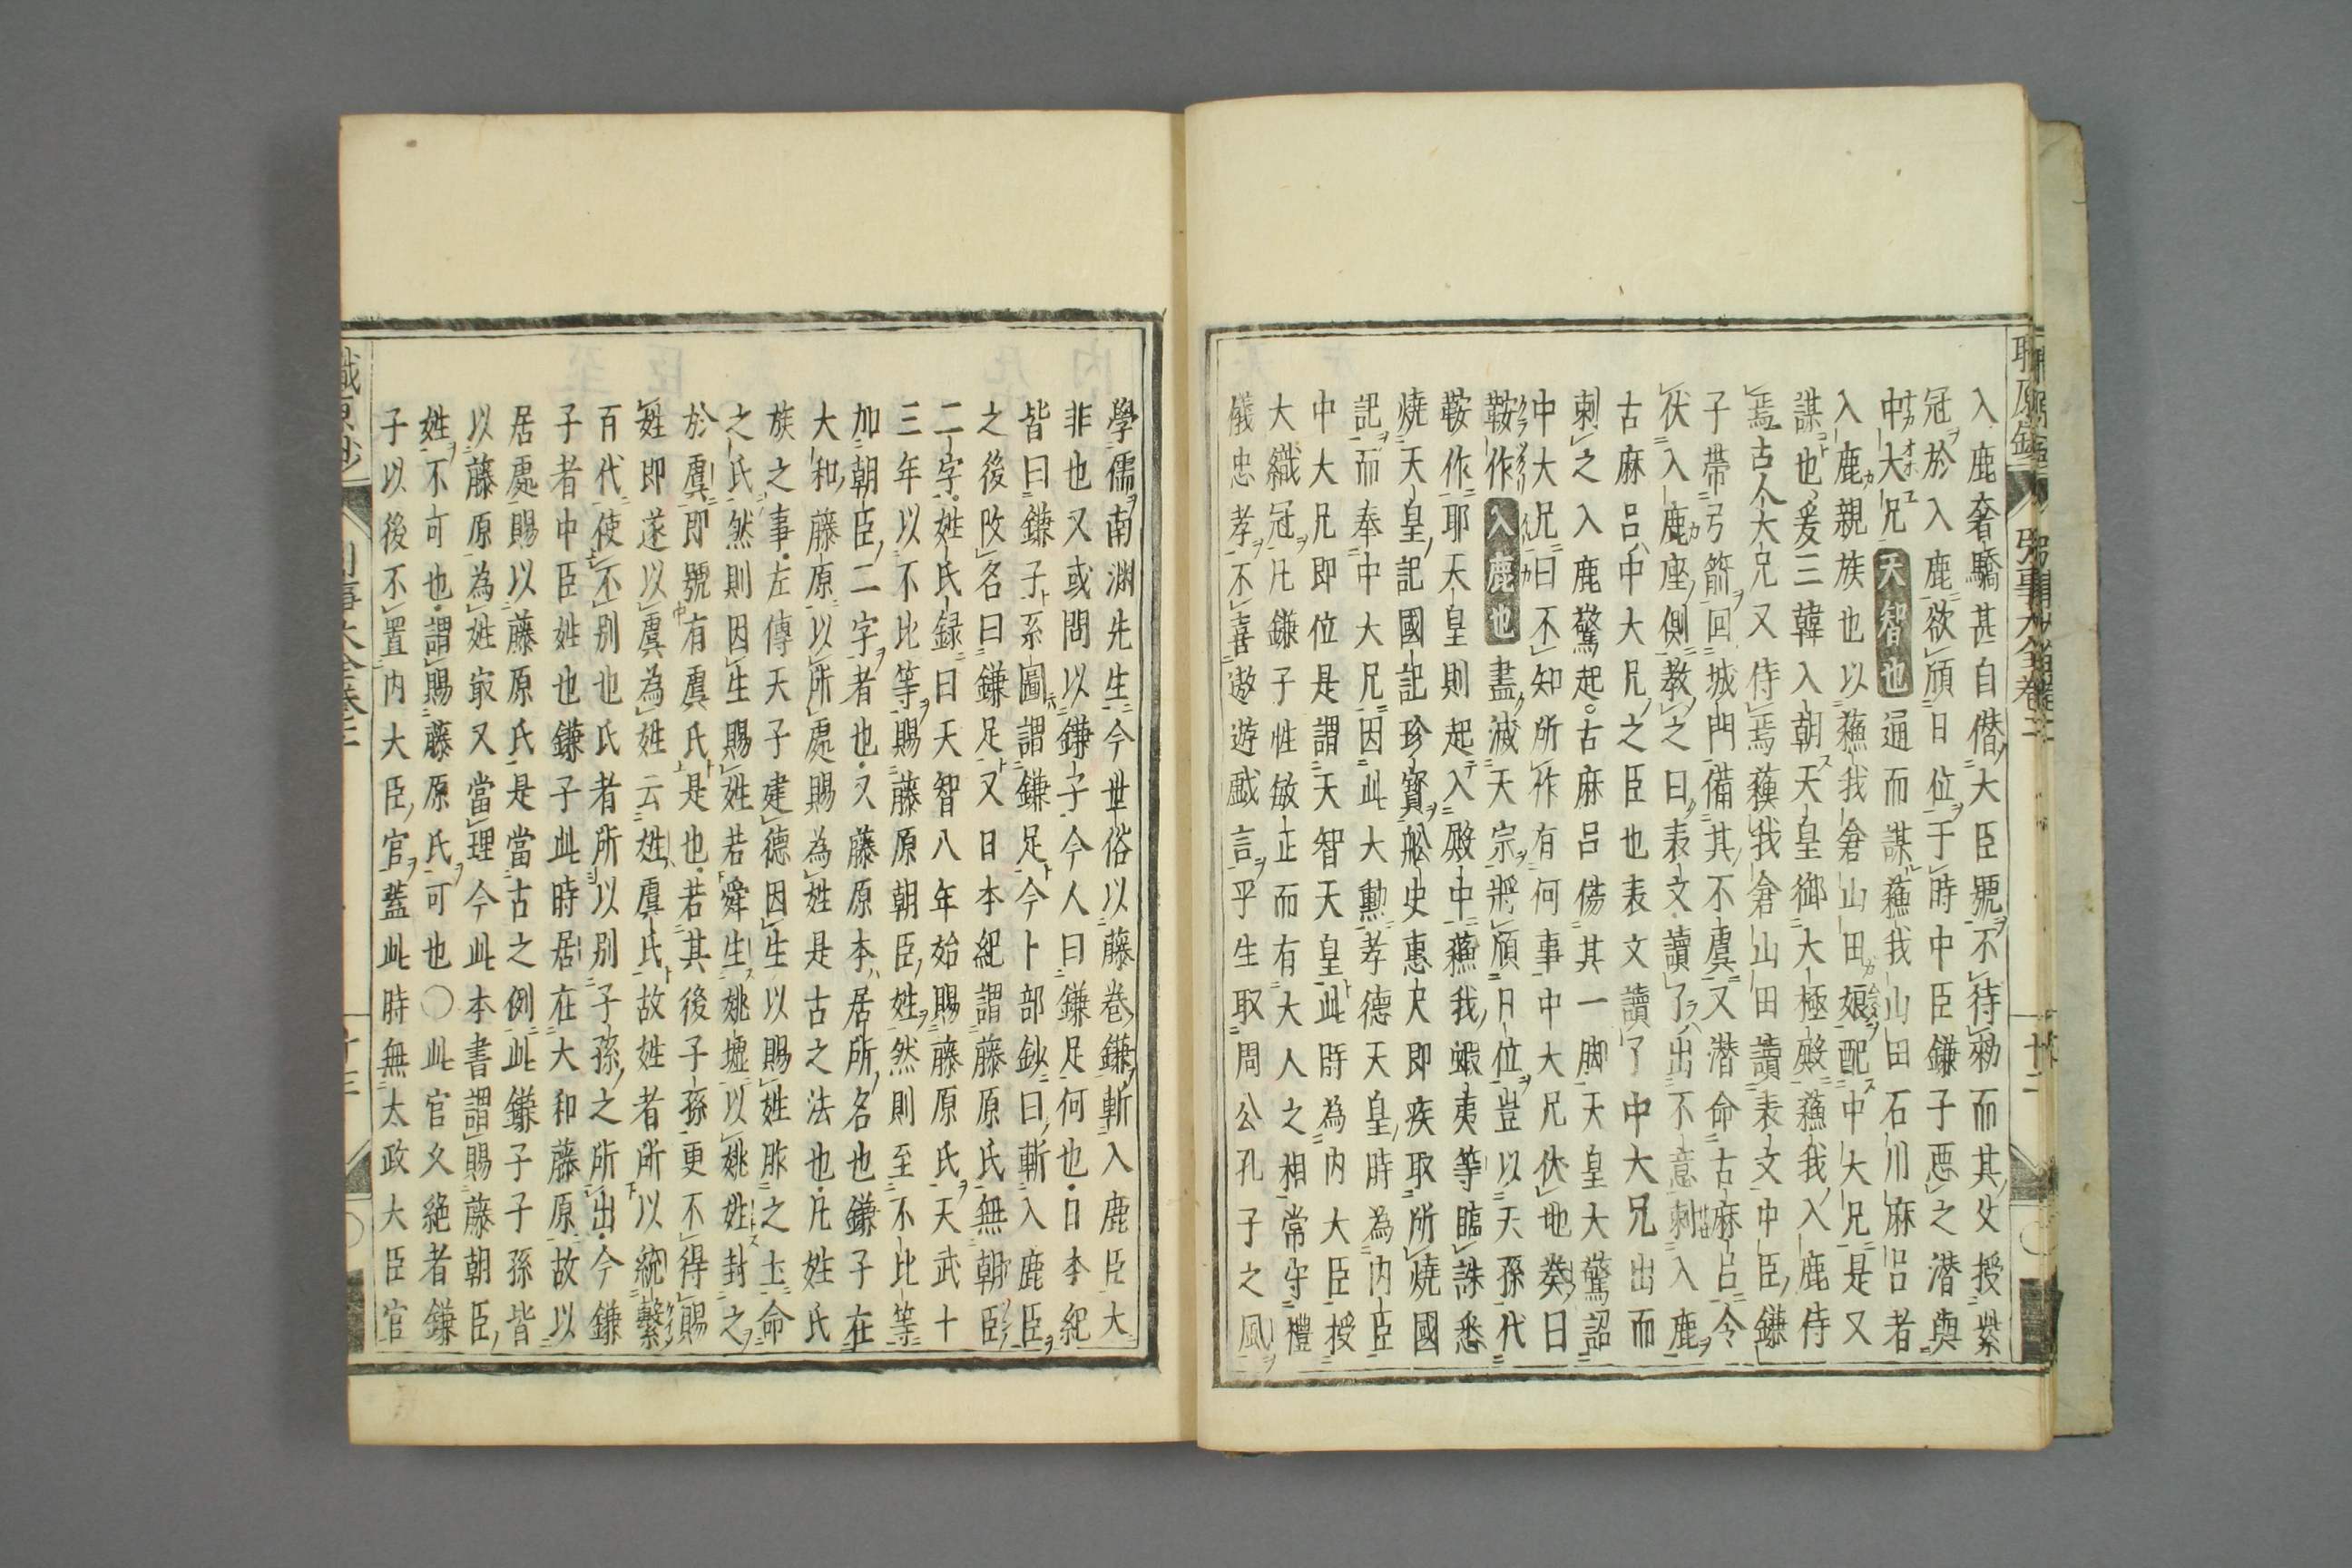 入鹿奢驕甚自僭大臣號不待勅而其父授紫
冠於入鹿欲頎日位于時中臣鎌子惡之潜與
中大兄天智也通而謀蘓我山田石川麻呂者
入鹿親族也以蘓我倉山田娘配中大兄是又
謀也爰三韓入朝天皇御大極殿蘓我入鹿侍
焉古人大兄又侍焉蘓我倉山田讀表文中臣鎌
子帶弓箭回城門備其不虞又潜命古麻呂令
伏入鹿座側教之曰表文讀了出不意刺入鹿
古麻呂中大兄之臣也表文讀了中大兄出而
刺之入鹿驚起古麻呂傷其一脚天皇大驚詔
中大兄曰不知所作有何事中大兄伏地奏曰
鞍作入鹿也盡滅天宗將頎日位豈以天孫代
鞍作耶天皇則起入殿中蘓我蝦夷等臨誅悉
燒天皇記國記珍寳舩史惠尺即疾取所燒國
記而奉中大兄因此大勳孝德天皇時為内臣
中大兄即位是謂天智天皇此時為内大臣授
大織冠凢鎌子性敏正而有大人之相常守禮
儀忠孝不喜遨遊戯言乎生取周公孔子之風
學儒南淵先生今世俗以藤卷鎌斬入鹿臣大
非也又或問以鎌子今人曰鎌足何也日本紀
皆曰鎌子系圖謂鎌足今卜部鈔曰斬入鹿臣
之後改名曰鎌足又日本紀謂藤原氏無朝臣
二字姓氏録曰天智八年始賜藤原氏天武十
三年以不比等賜藤原朝臣姓然則至不比等
加朝臣二字者也又藤原本居所名也鎌子在
大和藤原以所處賜為姓是古之法也凢姓氏
族之事左傳天子建德因生以賜姓胙之土命
之氏然則因生賜姓若舜生姚墟以姚姓封之
於虞即號有虞氏是也若其後子孫更不得賜
姓即遂以虞為姓云姓虞氏故姓者所以統繫
百代使不別也氏者所以別子孫之所出今鎌
子者中臣姓也鎌子此時居在大和藤原故以
居處賜以藤原氏是當古之例此鎌子子孫皆
以藤原為姓㝡又當理今此本書謂賜藤朝臣
姓不可也謂賜藤原氏可也〇此官久絶者鎌
子以後不置内大臣官蓋此時無太政大臣官